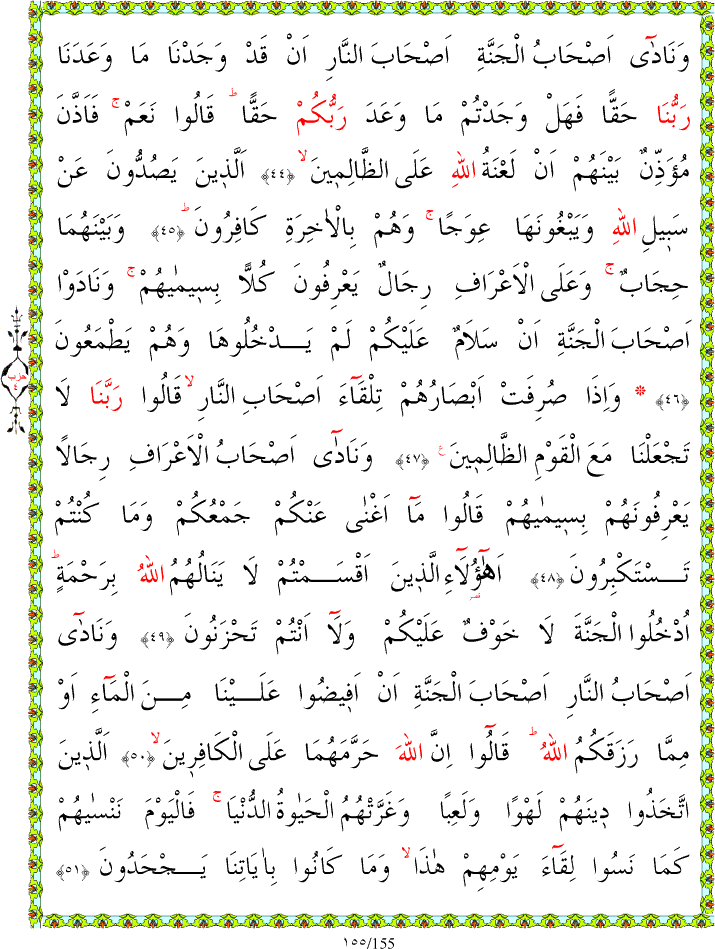 وَنَادٰٓى اَصْحَابُ الْجَنَّةِ اَصْحَابَ النَّارِ اَنْ قَدْ وَجَدْنَا مَا وَعَدَنَا
رَبُّنَا حَقًّا فَهَلْ وَجَدْتُمْ مَا وَعَدَ رَبُّكُمْ حَقًّاۜ قَالُوا نَعَمْۚ فَاَذَّنَ
مُؤَذِّنٌ بَيْنَهُمْ اَنْ لَعْنَةُ اللّٰهِ عَلَى الظَّالِم۪ينَۙ ﴿٤٤﴾ اَلَّذ۪ينَ يَصُدُّونَ عَنْ
سَب۪يلِ اللّٰهِ وَيَبْغُونَهَا عِوَجًاۚ وَهُمْ بِالْاٰخِرَةِ كَافِرُونَۜ ﴿٤٥﴾ وَبَيْنَهُمَا
حِجَابٌۚ وَعَلَى الْاَعْرَافِ رِجَالٌ يَعْرِفُونَ كُلًّا بِس۪يمٰيهُمْۚ وَنَادَوْا
اَصْحَابَ الْجَنَّةِ اَنْ سَلَامٌ عَلَيْكُمْ لَمْ يَدْخُلُوهَا وَهُمْ يَطْمَعُونَ
﴿٤٦﴾ * وَاِذَا صُرِفَتْ اَبْصَارُهُمْ تِلْقَٓاءَ اَصْحَابِ النَّارِۙ قَالُوا رَبَّنَا لَا
تَجْعَلْنَا مَعَ الْقَوْمِ الظَّالِم۪ينَ ع ﴿٤٧﴾ وَنَادٰٓى اَصْحَابُ الْاَعْرَافِ رِجَالًا
يَعْرِفُونَهُمْ بِس۪يمٰيهُمْ قَالُوا مَٓا اَغْنٰى عَنْكُمْ جَمْعُكُمْ وَمَا كُنْتُمْ
تَسْتَكْبِرُونَ ﴿٤٨﴾ اَهٰٓؤُ۬لَٓاءِ الَّذ۪ينَ اَقْسَمْتُمْ لَا يَنَالُهُمُ اللّٰهُ بِرَحْمَةٍۜ
قصر
اُدْخُلُوا الْجَنَّةَ لَا خَوْفٌ عَلَيْكُمْ وَلَٓا اَنْتُمْ تَحْزَنُونَ ﴿٤٩﴾ وَنَادٰٓى
اَصْحَابُ النَّارِ اَصْحَابَ الْجَنَّةِ اَنْ اَف۪يضُوا عَلَيْنَا مِنَ الْمَٓاءِ اَوْ
مِمَّا رَزَقَكُمُ اللّٰهُۜ قَالُٓوا اِنَّ اللّٰهَ حَرَّمَهُمَا عَلَى الْكَافِر۪ينَۙ ﴿٥٠﴾ اَلَّذ۪ينَ
اتَّخَذُوا د۪ينَهُمْ لَهْوًا وَلَعِبًا وَغَرَّتْهُمُ الْحَيٰوةُ الدُّنْيَاۚ فَالْيَوْمَ نَنْسٰيهُمْ
كَمَا نَسُوا لِقَٓاءَ يَوْمِهِمْ هٰذَاۙ وَمَا كَانُوا بِاٰيَاتِنَا يَجْحَدُونَ ﴿٥١﴾
حزب
٤
١٥٥/155